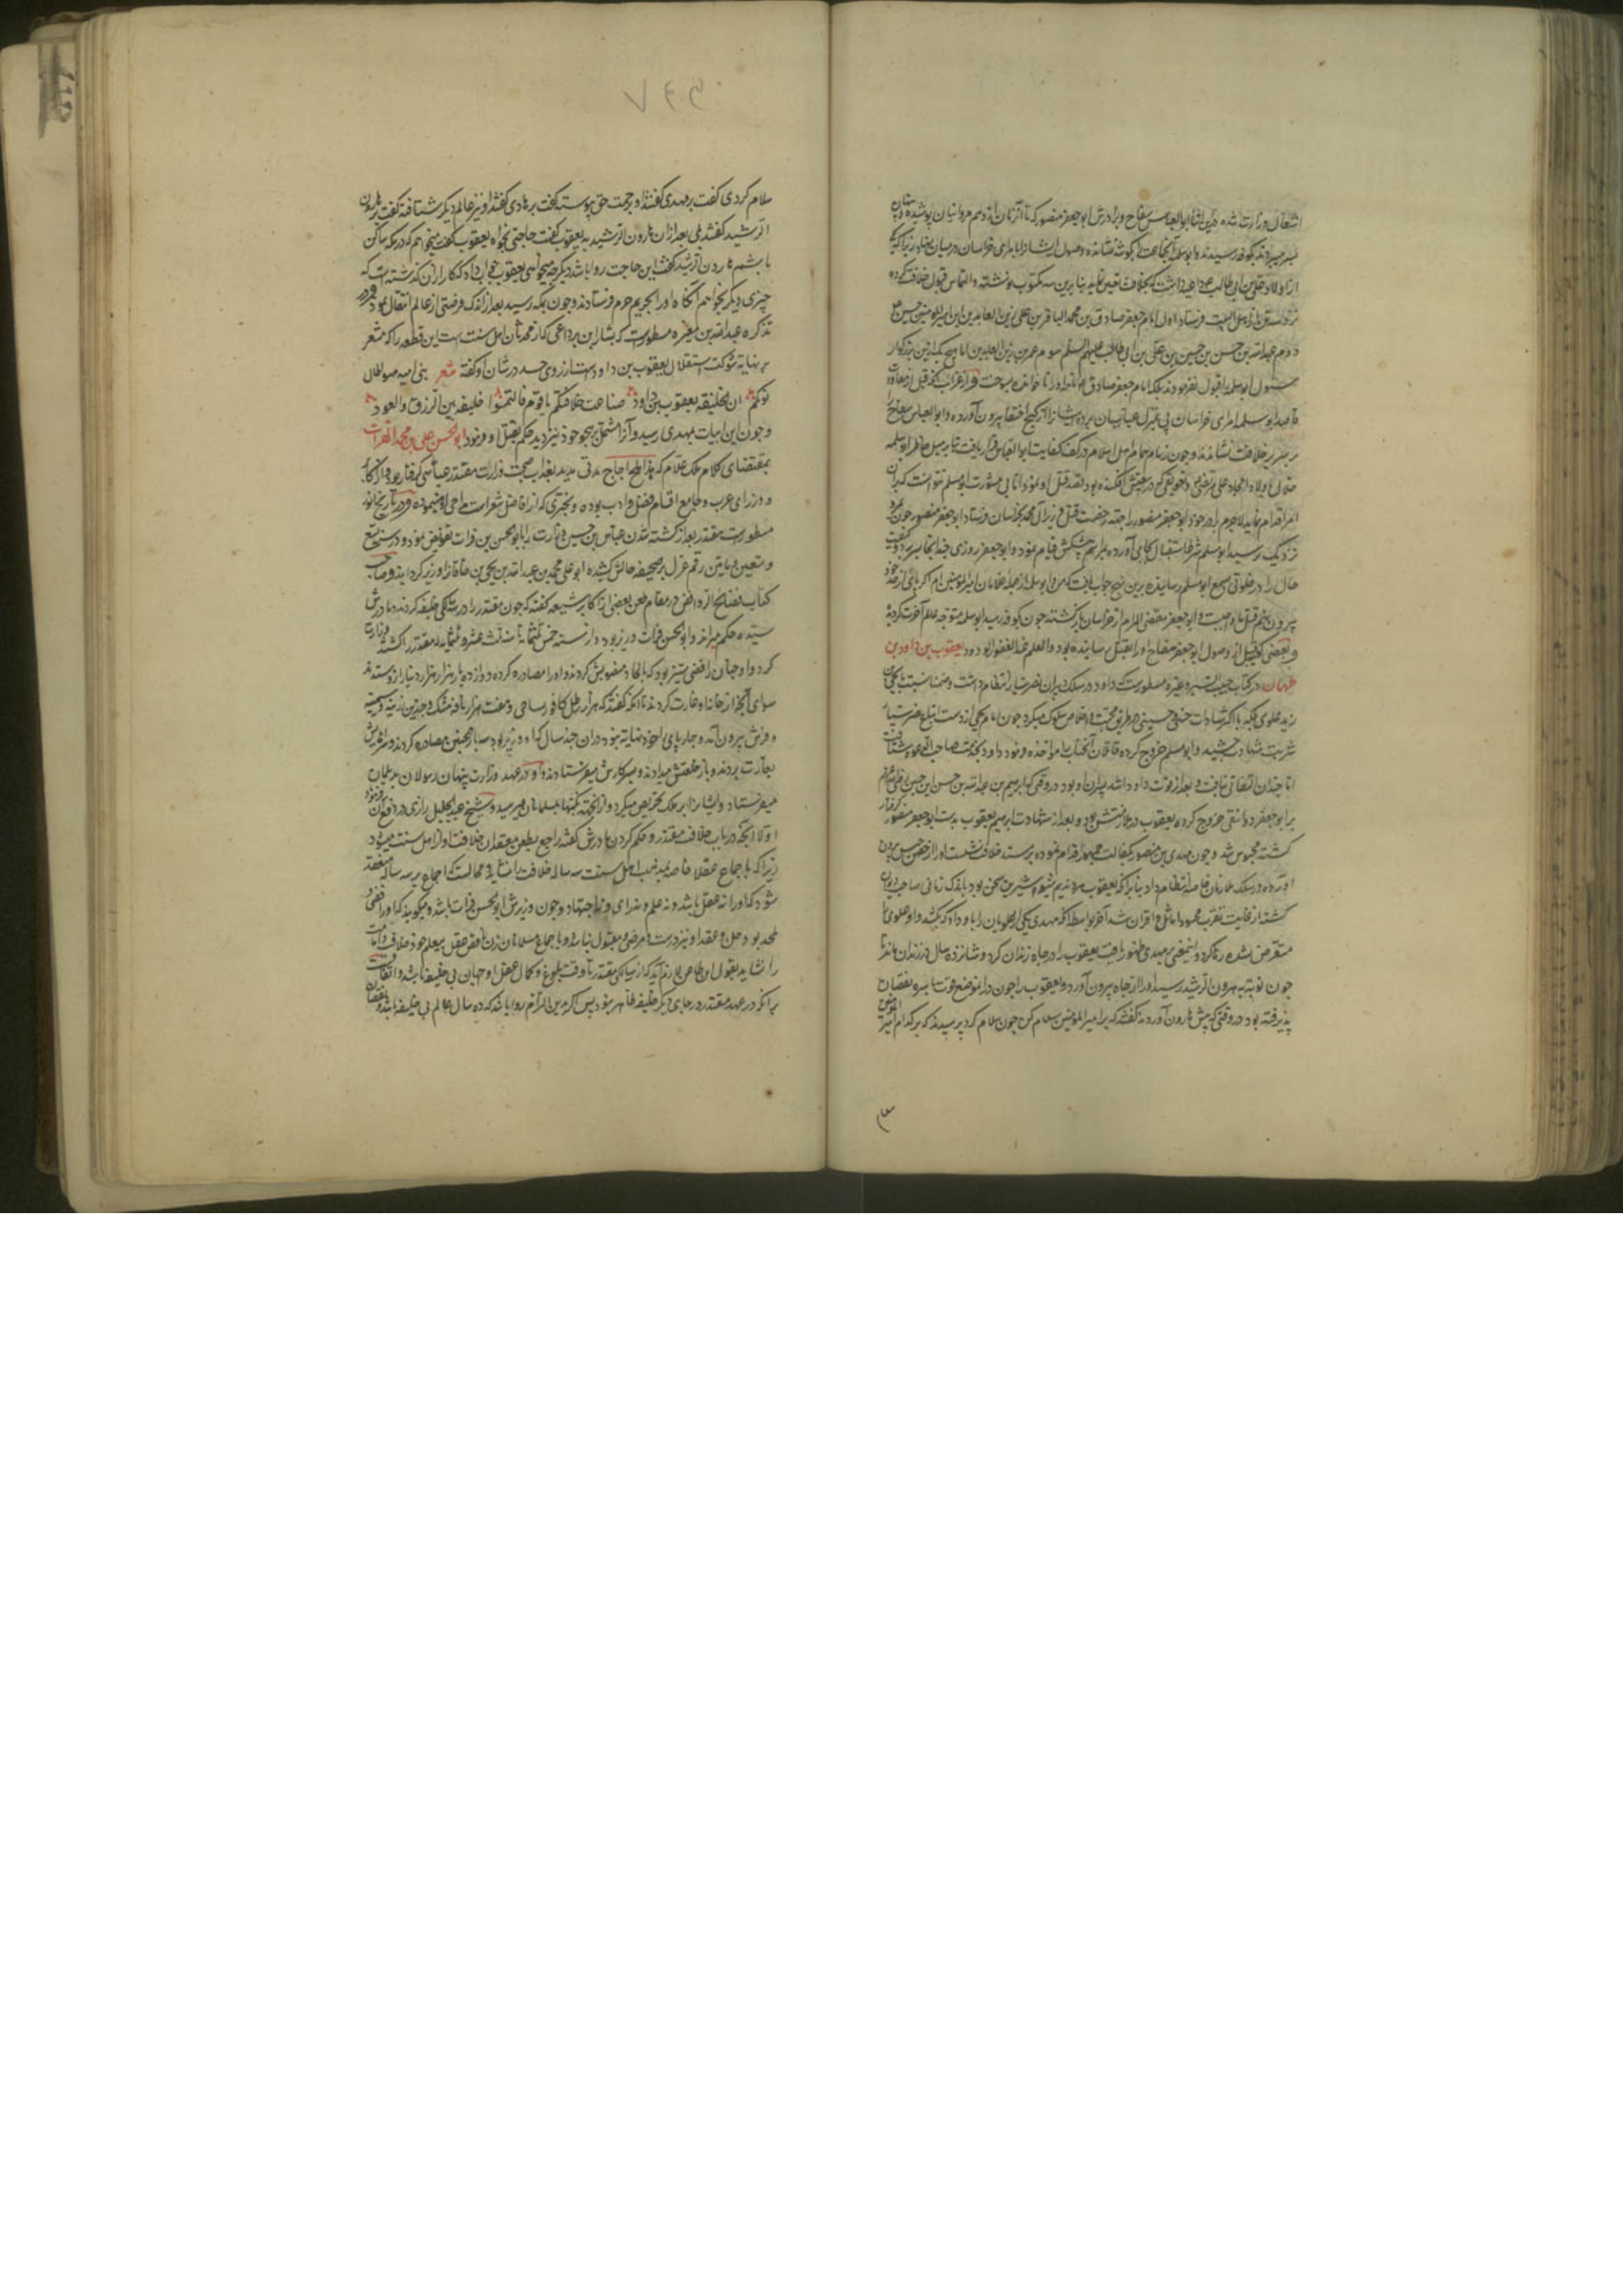 اشتغال وزارت شده درین اثنا ابوالعباس سفاح و برادرش ابو جعفر منصور که تا آن زمان از وهم مروانیان پوشیده و پنهان
بسر میبردند بکوفه رسیدند و ابو سلمه آن جماعت را در گوشه نشانده وصول ایشان را با امرای خراسان در میان ننهاد زیرا که
از اولاد علی بن ابی طالب بنابرین سه مکتوب نوشته و التماس قبول خلافت کرده
نزد سه تن از اهل بیت فرستاد اول امام جعفر صادق بن محمد الباقر بن علی زین العابدین ابن امیر المؤمنین حسین
دوم عبد الله بن حسن بن حسین بن علی بن ابی طالب علیهم السلم سوم عمر بن زین العابدین اما هیچ یک ازین بزرگوار
مسئول ابو سلمه را قبول نفرمودند بلکه امام جعفر صادق نامه او را ناخوانده بسوخت و از غرایب آنکه قبل از معاودت
قاصد ابو سلمه امرای خراسان پی بمنزل عباسیان برده ایشان را از کنج اختفا بیرون آورده و ابو العباس سفاح را
بر سریر خلافت نشاندند و چون زمام مهام اهل اسلام در کف کفایت ابو العباس قرار یافت بنابر میل خاطر ابو سلمه
امر اقدام نماید لاجرم برادر خود ابو جعفر منصور را جهة رخصت قتل وزیر آل محمد بخراسان فرستاد ابو جعفر منصور چون بمرو
نزدیک رسید ابو مسلم شرط استقبال بجای آورده بمراسم پیشکش قیام نمود و ابو جعفر روزی چند آنجا بسر برده کیفیت
حال را در خلوتی بسمع ابو مسلم رسانیده برین نهج جواب یافت که من و ابو سلمه از جمله غلامان امیر المؤمنین ایم اگر پای از حد خود
بیرون نهیم قتل ما واجبست و ابو جعفر مقضی المرام از خراسان بازگشته چون بکوفه رسید ابو سلمه متوجه عالم آخرت گردید
و بعضی گفته‌اند قبل از وصول ابو جعفر سفاح او را بقتل رسانیده بود و العلم عند الغفور الودود یعقوب بن داود بن
طهمان در کتاب حبیب السیر و غیره مسطورست که داود در سلک دبیران نصر سیار انتظام داشت و ضمنا نسبت بیحیی بن
زید علوی بلکه با اکثر سادات حسنی و حسینی در طریق محبت و اخلاص سلوک میکرد چون امام یحیی از دست اتباع نصر سیار
شربت شهادت چشید و ابو مسلم خروج کرده قاتلان آنجناب را مواخذه فرمود داود بخدمت صاحب الدعوه شتافت
اما چندان التفاتی نیافت و بعد از فوت داود اشهد پسران او بود در وقتی که ابراهیم بن عبد الله بن حسن ابن حسین بن علی علیهم السلام
بر ابو جعفر دوانقی خروج کرده یعقوب در ملازمتش بود و بعد از شهادت ابراهیم یعقوب بدست ابو جعفر منصور گرفتار
گشته محبوس شد و چون مهدی بن منصور بکفالت جمهور اقدام نموده بر مسند خلافت نشست او را از حبس بیرون
آورده در سلک ملازمان خاصه انتظام داد بنابر آنکه یعقوب مردی ندیم شیوه شیرین سخن بود باندک زمانی صاحب دیوان
گشته از غایت تقرب محسود اماثل و اقران شد آخر بواسطه آنکه مهدی یکی از علویان را باو داد که بکشد و او علوی را
متعرض نشده رها کرد و این معنی بر مهدی ظهور یافت یعقوب را در چاه زندان کرد و شانزده سال در زندان ماند تا
چون نوبت بهرون الرشید رسید او را از چاه بیرون آورد و یعقوب را چون در آن موضع قوت باصره نقصان
پذیرفته بود در وقتی که پیش هارون آوردند گفتند که بر امیر المؤمنین سلام کن چون سلام کرد پرسیدند که بر کدام امیر المؤمنین
سلام کردی گفت بر مهدی گفتند او برحمت حق پیوسته گفت بر هادی گفتند او نیز بعالم دیگر شتافته گفت بر هارون
الرشید گفتند بلی بعد از ان هارون الرشید به یعقوب گفت حاجتی بخواه یعقوب گفت میخواهم که در مکه ساکن
باشم هارون الرشید گفت این حاجت روا باشد دیگر چه میخواهی یعقوب جواب داد که کار از آن گذشته است که
چیزی دیگر بخواهم آنگاه او را بحریم حرم فرستادند و چون بمکه رسید بعد از اندک فرصتی از عالم انتقال نمود و در
تذکره عبد الله بن مغیره مسطورست که بشار ابن برد اعمی که از محدثان اهل سنت است این قطعه را که مشعر
بر نهایة شوکت و استقلال یعقوب بن داود است از روی حسد در شان او گفته شعر بنی امیه هبوا طال
نومکم ان الخلیفة یعقوب بن داود ضاعت خلافتکم یا قوم فالتمسوا خلیفه بین الزق والعود
و چون این ابیات بمهدی رسید و آنرا مشتمل بر هجو خود نیز دید حکم بقتل او فرمود ابو الحسن علی بن محمد الفرات
بمقتضای کلام ملک علام که هذا ملح اجاج مدتی مدید بعذاب صحبت وزارت مقتدر عباسی گرفتار بود و از اکابر
و وزرای عرب و جامع اقسام فضل و ادب بوده و بحتری که از افاضل شعراست مداحی او مینموده و در تاریخ
مسطورست مقتدر بعد از کشته شدن عباس بن حسین وزارت را بابو الحسن بن فرات تفویض نمود و در سنه تسع
و تسعین و مایتین رقم عزل بر صحیفه حالش کشیده ابو علی محمد بن عبد الله بن یحیی بن خاقان را وزیر گردانید و صاحب
کتاب فضایح الروافض در مقام طعن بعضی از اکابر شیعه گفته که چون مقتدر را در سن کودکی خلیفه کردند مادرش
سیده حکم میراند و ابو الحسن فرات وزیر بود و از سنه خمس و ثلثمایة تا سنه ثلث عشره و ثلثمایه مقتدر را کشتند وزارت
کرد و او چنان رافضی ستیز بود که بالحاد منسوبش کردند و او را مصادره کرده دوازده بار هزار هزار دینار ازو ستدند
سوای آنچه از خانه او غارت کردند تا آنکه گفتند که هزار رطل کافور ریاحی و هفت هزار نافه مشک و چندین زرینه و سیمینه
و فرش بیرون آمد و چارپای را خود نهایة نبود در ان چند سال که او وزیر بود سه بار همچنین مصادره کردند و سرایش
بغارت بردند و باز خلعتش میدادند و بسر کارش میفرستادند و او در عهد وزارت پنهان رسولان بدیلمان
میفرستاد و ایشان را بر ملک تحریص میکرد و از آن جهة نکبتها بمسلمانان میرسید و شیخ عبد الجلیل رازی در دفع آن فرموده
اولا آنچه در باب خلافت مقتدر و حکم کردن مادرش گفته راجع بطعن معتقدان خلافت او از اهل سنت میشود
زیرا که باجماع عقلا خاصه بمذهب اهل سنت سه ساله خلافت را نشاید و محالست که اجماع بر سه ساله منعقد
شود که او را نه عقل باشد و نه علم و نه رای و نه اجتهاد و چون وزیرش ابو الحسن فرات باشد و میگوید که او رافضی و
ملحد بود حل و عقد او نیز درست و مرضی و مقبول نباشد و باجماع مسلمانان زن ناقص عقل بی علم خود خلافت و امامت
را نشاید بقول این طاعن لازم آید که از سه سالگی مقتدر تا وقت بلوغ و کمال عقل او جهان بی خلیفه باشد و اتفاقست
بر آنکه در عهد مقتدر در جای دیگر خلیفه ظاهر نبود پس اگر بدین التزام روا باشد که ده سال عالم بی خلیفه باشد